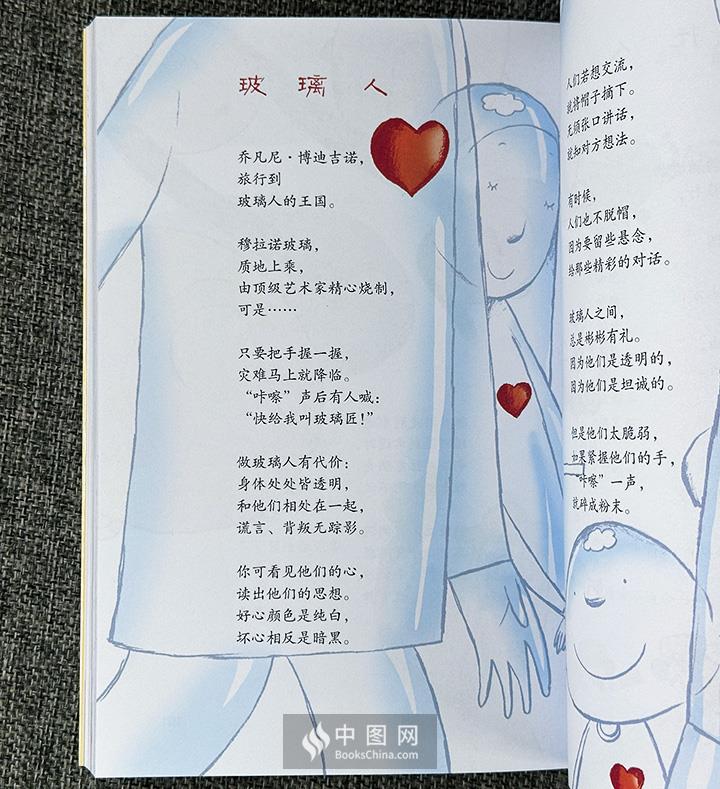 玻璃人
乔凡尼·博迪吉诺，
旅行到
玻璃人的王国。
穆拉诺玻璃，
质地上乘，
由顶级艺术家精心烧制，
可是……
只要把手握一握，
灾难马上就降临。
“咔嚓”声后有人喊：
“快给我叫玻璃匠！”
做玻璃人有代价：
身体处处皆透明，
和他们相处在一起，
谎言、背叛无踪影。
你可看见他们的心，
读出他们的思想。
好心颜色是纯白，
坏心相反是暗黑。
人们若想交流，
就将帽子摘下。
无须张口讲话，
就知对方想法。
有时候，
人们也不脱帽，
因为要留些悬念，
给那些精彩的对话。
玻璃人之间，
总是彬彬有礼。
因为他们是透明的，
因为他们是坦诚的。
但是他们太脆弱，
如果紧握他们的手，
“咔嚓”一声，
就碎成粉末。
中图网
BooksChina.com